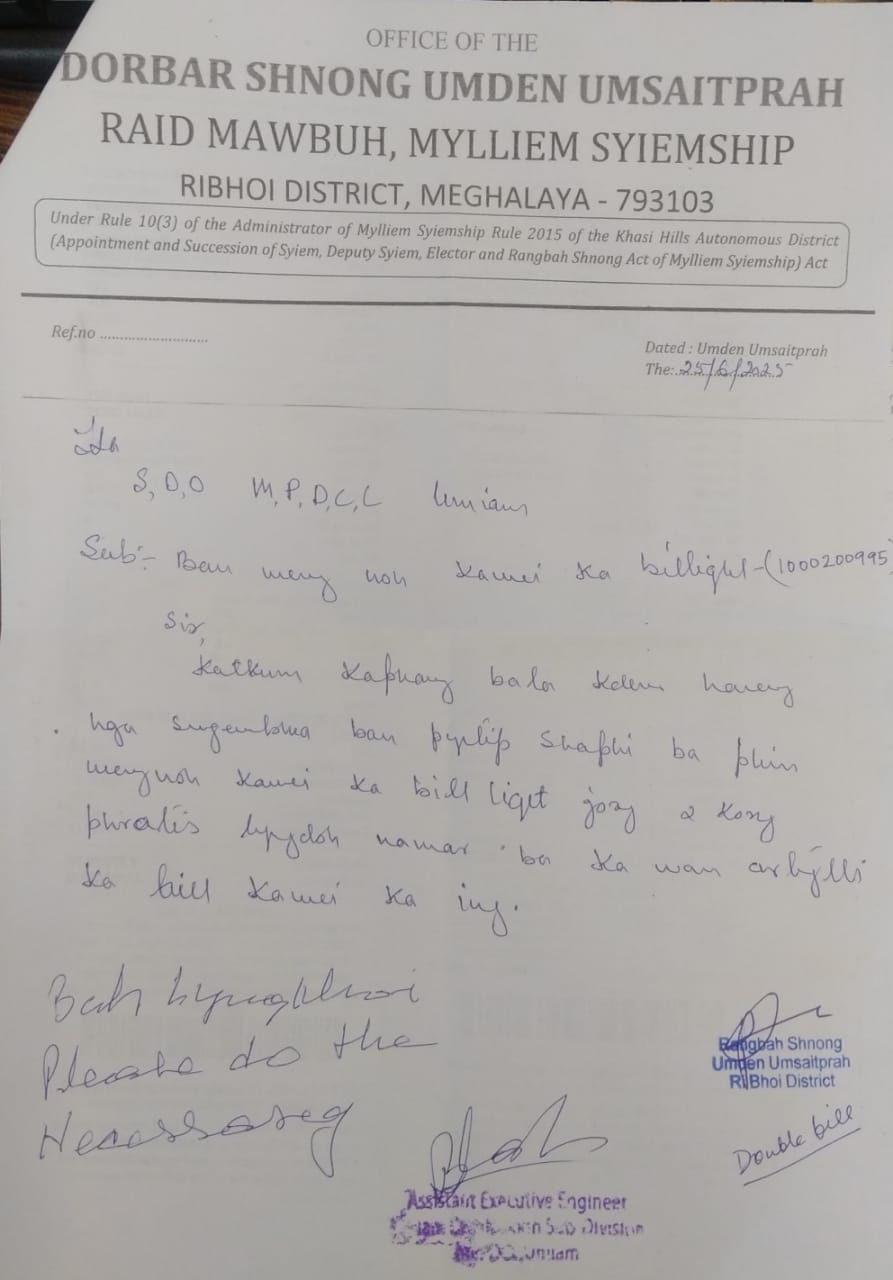 OFFICE OF THE
DORBAR SHNONG UMDEN UMSAITPRAH
RAID MAWBUH, MYLLIEM SYIEMSHIP
RIBHOI DISTRICT, MEGHALAYA - 793103
Under Rule 10(3) of the Administrator of Mylliem Syiemship Rule 2015 of the Khasi Hills Autonomous District
(Appointment and Succession of Syiem, Deputy Syiem, Elector and Rangbah Shnong Act of Mylliem Syiemship) Act
Ref.no ...........................
Dated : Umden Umsaitprah
The: 25/6/2025
S,D,O M,P,D,C,L Umiam
Sub:- Ban weng noh kawei ka billight-(1000200995)
Sir,
Katkum kaphang bala kdew haneng
nga sngewbha ban pyntip shaphi ba phin
weng noh kawei ka bill liget jong
phratis namar ba ka wan arbylli
ka bill kawei ka ing.
Bah
Please do the
Rangbah Shnong
Umden Umsaitprah
Ri Bhoi District
Double bill
Assistant Executive Engineer
Sub Division